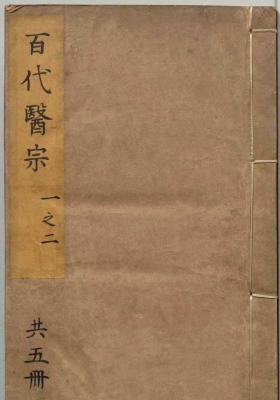 百代醫宗
一之二
共五冊